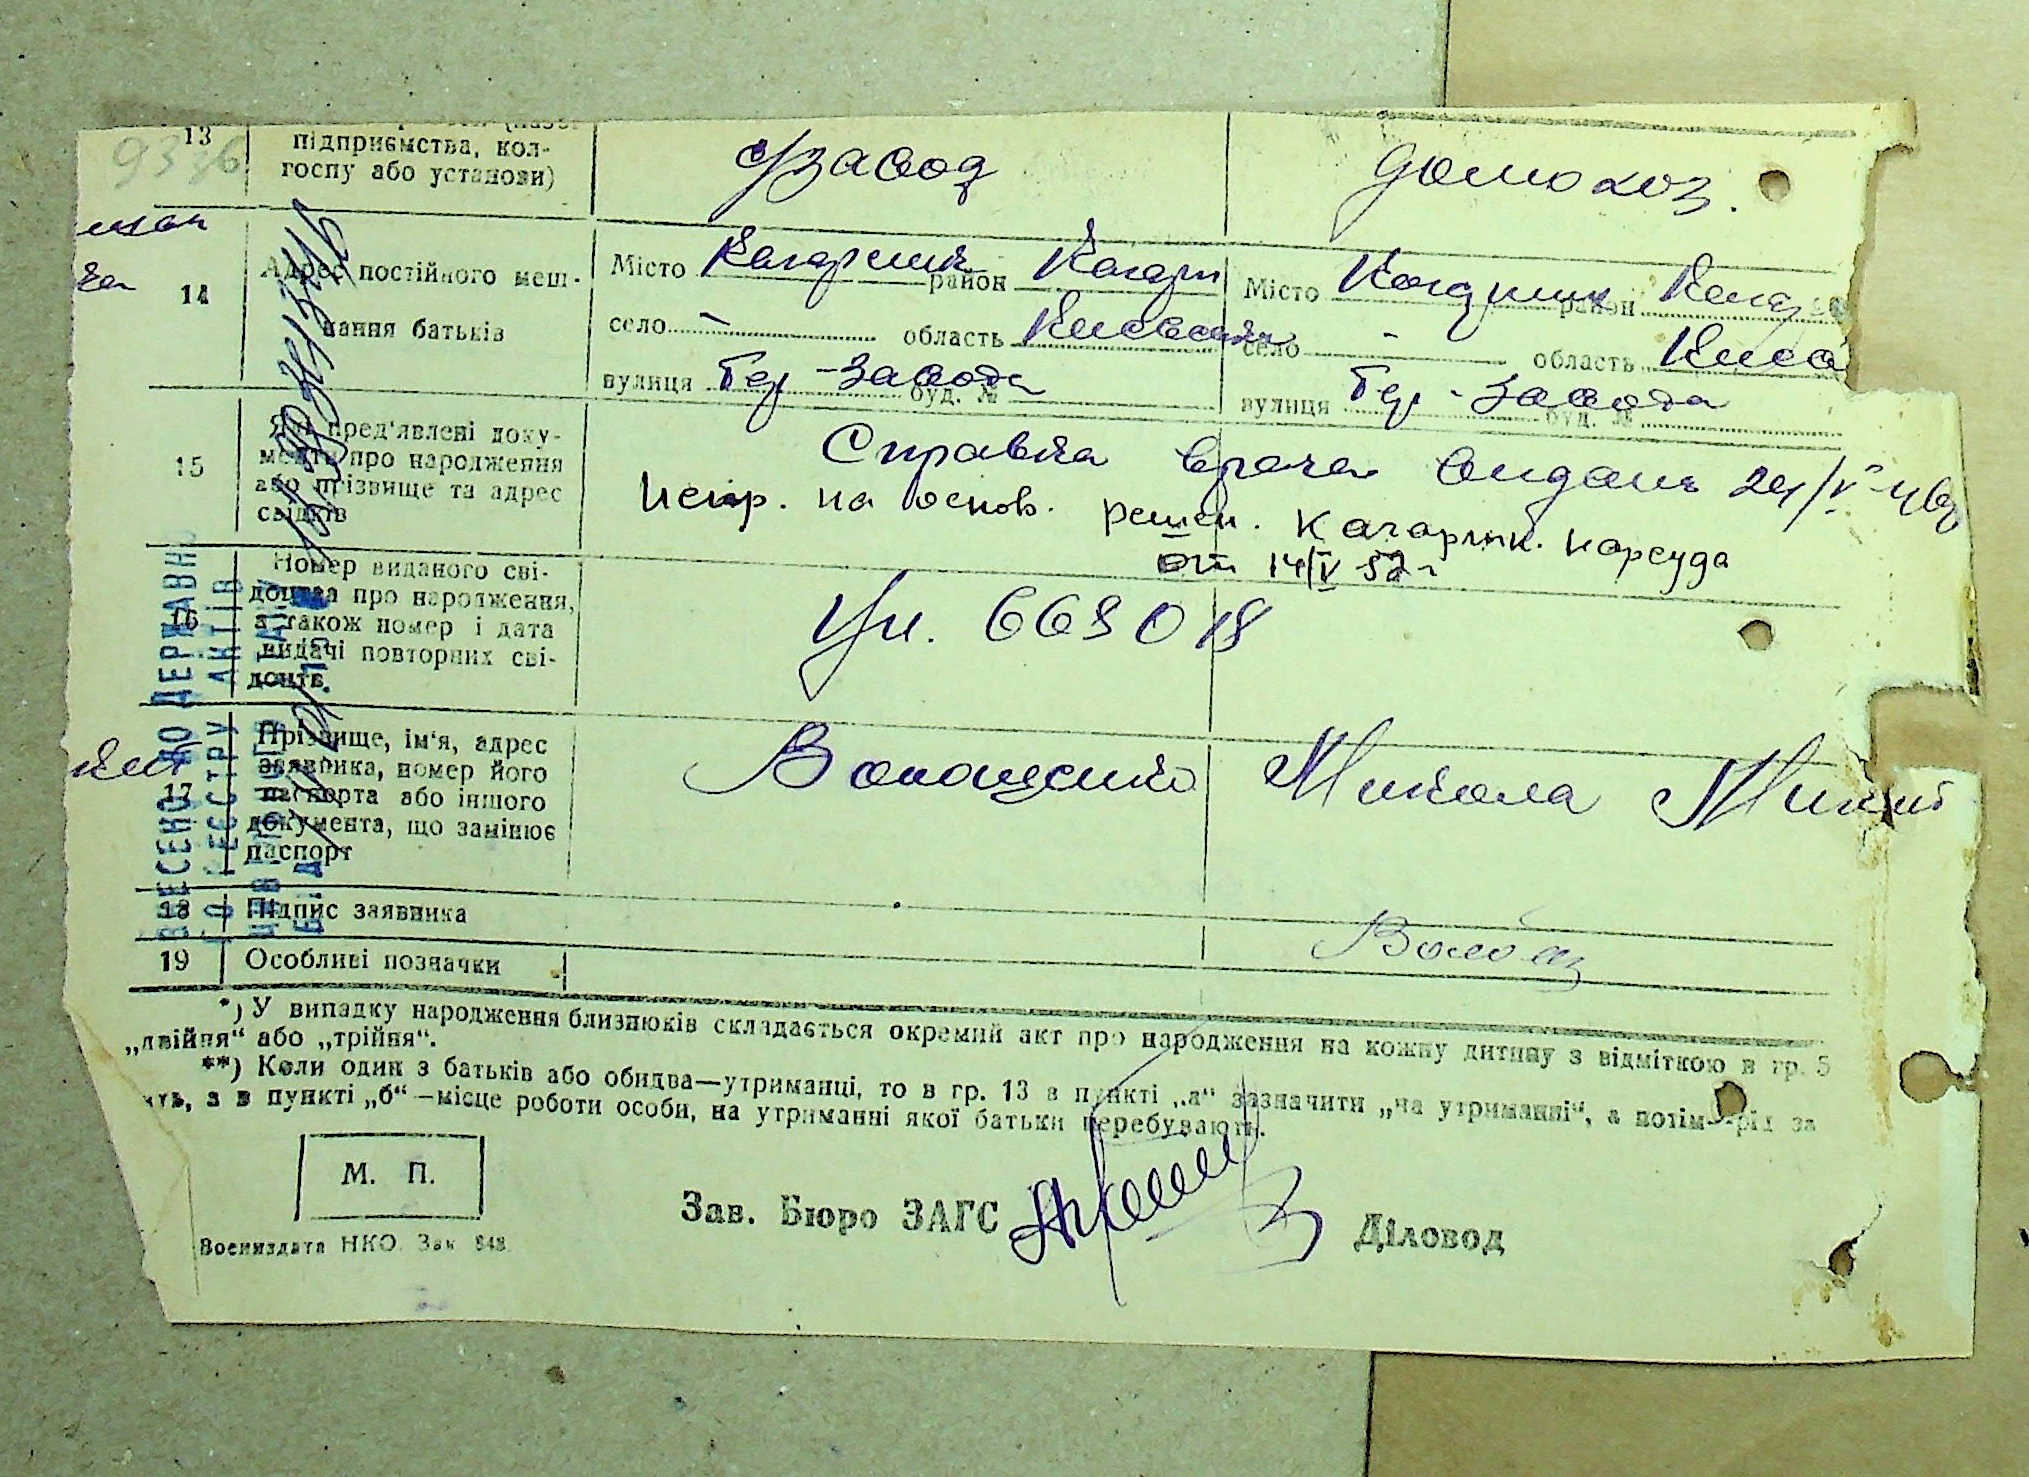 9336
13 підприємства, кол-
госпу або установи)
завод
домохоз.
14 Адрес постійного меш-
кання батьків
Місто Кагарлик район Кагарл
село - область Киевская
вулиця Тер-завода буд. №
Місто Кагарлик район Кага
село - область Киев
вулиця Тер-завода буд. №
15 Які пред'явлені доку-
менти про народження
або прізвище та адрес
свідків
Справка врача видана 24/V-46р
Испр. на основ. решен. Кагарлик. нарсуда
от 14/V-52 г
16 Номер виданого сві-
доцтва про народження,
а також номер і дата
видачі повторних сві-
доцтв
17 Прізвище, ім'я, адрес
заявника, номер його
паспорта або іншого
документа, що замінює
паспорт
Микола
18 Підпис заявника
19 Особливі позначки
ВНЕСЕНО ДО ДЕРЖАВНО
ГО РЕЄСТРУ АКТІВ
*) У випадку народження близнюків складається окремий акт про народження на кожну дитину з відміткою в гр. 5
„двійня“ або „трійня“.
**) Коли один з батьків або обидва—утриманці, то в гр. 13 в пункті „а“ зазначити „на утриманні“, а потім—рід за
ять, а в пункті „б“—місце роботи особи, на утриманні якої батьки перебувають.
М. П.
Зав. Бюро ЗАГС
Діловод
Воениздата НКО. Зак 848